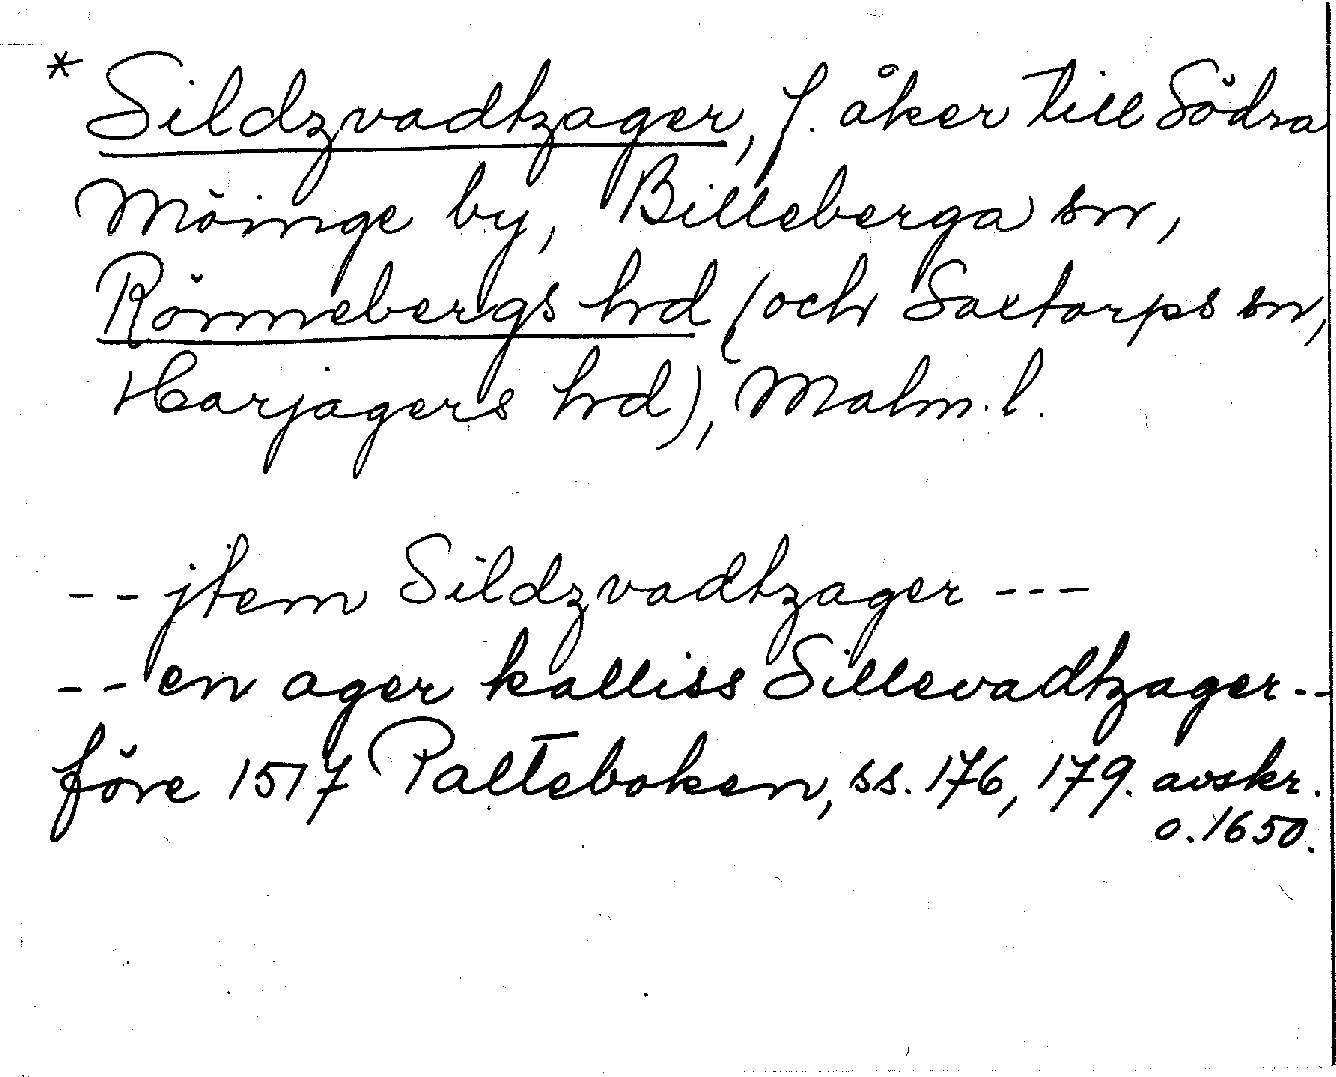 * Sildzvadtzager, f. åker till Södra
Möinge by, Billeberga sn,
Rönnebergs hrd (och Saxtorps sn,
Harjagers hrd), Malm. l.
-- jtem Sildzvadtzager ---
-- en ager kalliss Sillevadtzager --
före 1517 Palteboken, ss. 176, 179. avskr.
o. 1650.